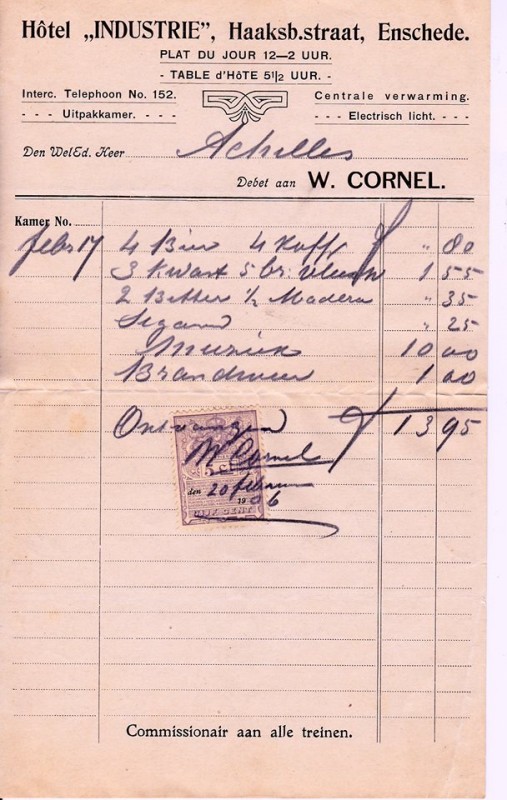 Hôtel „INDUSTRIE", Haaksb.straat, Enschede.
PLAT DU JOUR 12—2 UUR.
- TABLE d'HÔTE 5½ UUR. -
Interc. Telephoon No. 152.
- - - Uitpakkamer. - - -
Centrale verwarming.
- - - Electrisch licht. - - -
Den WelEd. Heer Achilles
Debet aan W. CORNEL.
Kamer No.
febr 17 4 Bier 4 Koffi „ 80
3 Kwast 5 br: 1 55
2 Bitter ½ Madera „ 35
Segaren „ 25
Muziek 10 00
Brandweer 1 00
Ontvangen 13 95
W Cornel
5 CT
den 20 februari
1906
VIJF CENT
Commissionair aan alle treinen.